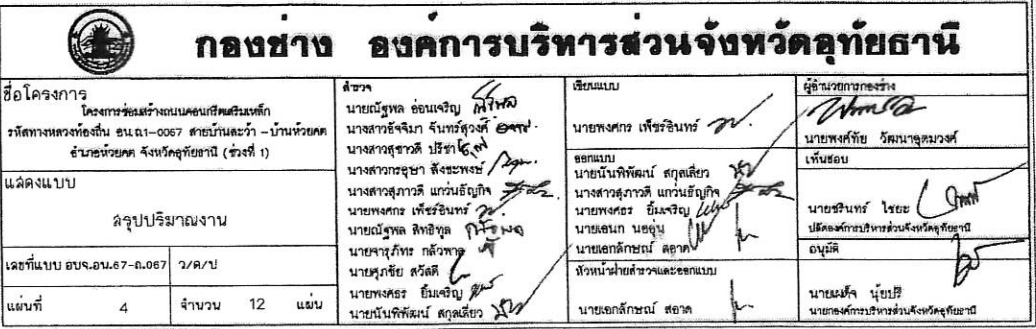 กองช่าง องค์การบริหารส่วนจังหวัดอุทัยธานี
ชื่อโครงการ
โครงการซ่อมสร้างถนนคอนกรีตเสริมเหล็ก
รหัสทางหลวงท้องถิ่น อน.ถ1-0067 สายบ้านละว้า - บ้านห้วยคต
อำเภอห้วยคต จังหวัดอุทัยธานี (ช่วงที่ 1)
แสดงแบบ
สรุปปริมาณงาน
เลขที่แบบ อบจ.อน.67-ถ.067 ว/ด/ป
แผ่นที่ 4 จำนวน 12 แผ่น
สำรวจ
นายณัฐพล อ่อนเจริญ
นางสาวอัจจิมา จันทร์สุวงศ์
นางสาวสุชาวดี ปรีชา
นางสาวกรอุษา สังชะพงษ์
นางสาวสุภาวดี แกว่นธัญกิจ
นายพงศกร เพ็ชร์อินทร์
นายณัฐพล สิทธิทูล
นายจารุภัทร กลัวพาล
นายศุภชัย สวัสดี
นายพงศธร ยิ้มเจริญ
นายนันพิพัฒน์ สกุลเสี่ยว
เขียนแบบ
นายพงศกร เพ็ชร์อินทร์
ออกแบบ
นายนันพิพัฒน์ สกุลเสี่ยว
นางสาวสุภาวดี แกว่นธัญกิจ
นายพงศธร ยิ้มเจริญ
นายเอนก นออุ่น
นายเอกลักษณ์ สอาด
หัวหน้าฝ่ายสำรวจและออกแบบ
นายเอกลักษณ์ สอาด
ผู้อำนวยการกองช่าง
นายพงค์ทัย วัฒนาอุดมวงศ์
เห็นชอบ
นายชรินทร์ ไชยะ
ปลัดองค์การบริหารส่วนจังหวัดอุทัยธานี
อนุมัติ
นายเผด็จ นุ้ยปรี
นายกองค์การบริหารส่วนจังหวัดอุทัยธานี